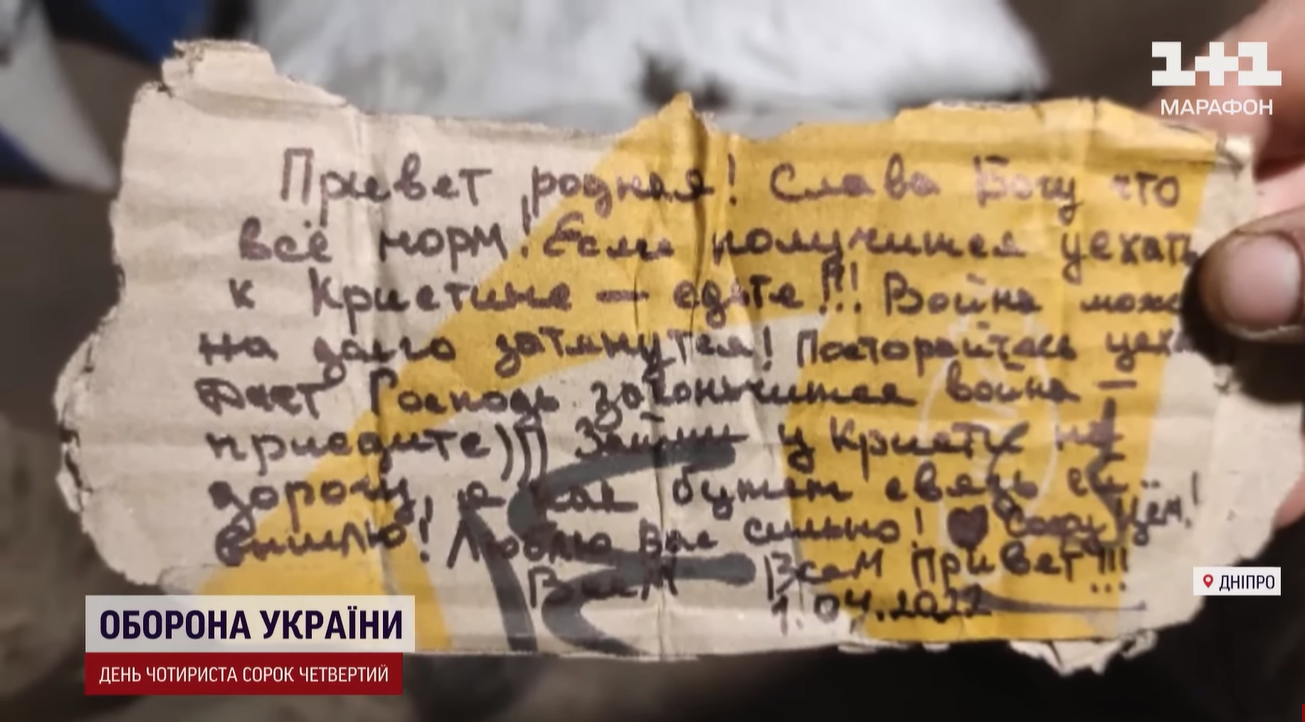 1+1
МАРАФОН
Привет родная! Слава Богу что
всё норм! Если получится уехать
к Кристине — едьте!!! Война може
на долго затянутся! Посторайтесь уех
Даст Господь закончится война —
приедите))) Займи у Кристи на
дорогу, а как будет связь
вышлю! Люблю Вас сильно! ♥
Всем Всем Привет!!!
1.04.2022
ДНІПРО
ОБОРОНА УКРАЇНИ
ДЕНЬ ЧОТИРИСТА СОРОК ЧЕТВЕРТИЙ